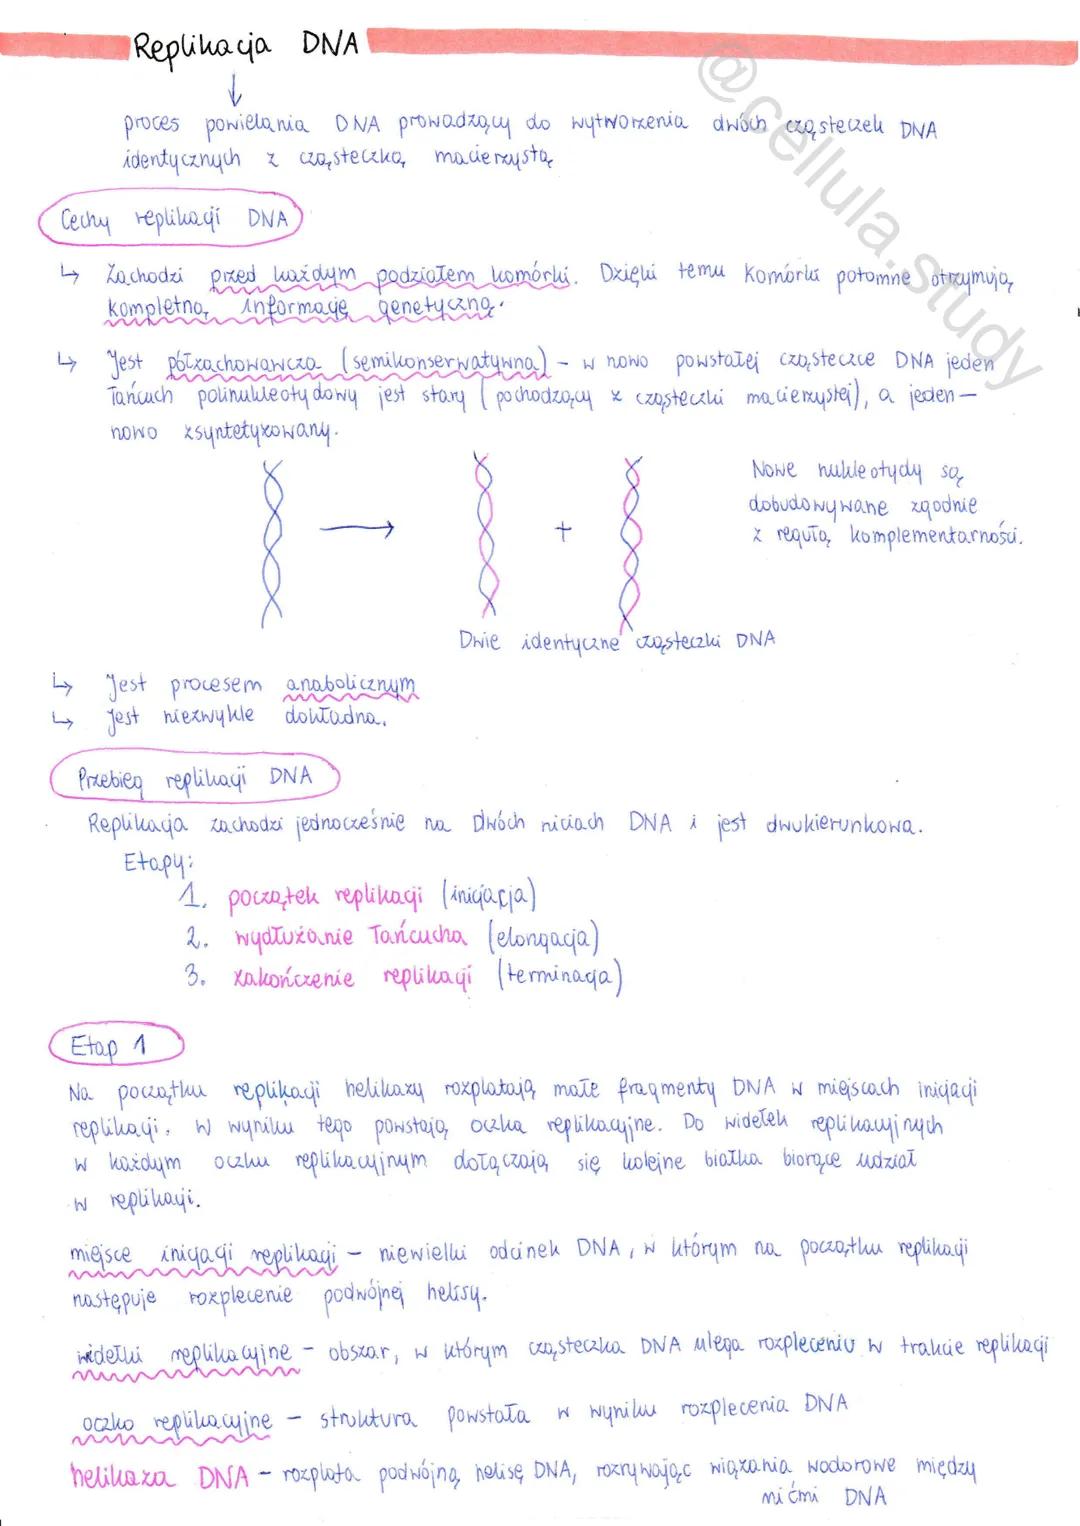 Replikacja DNA
↓
proces powielania DNA prowadzący do wytworzenia dwóch cząsteczek DNA
identycznych z cząsteczką macierzystą
Cechy replikacji DNA
↳ Zachodzi przed każdym podziałem komórki. Dzięki temu komórki potomne otrzymują
kompletną informację genetyczną.
↳ Jest półzachowawcza (semikonserwatywna) – w nowo powstałej cząsteczce DNA jeden
łańcuch polinukleotydowy jest stary (pochodzący z cząsteczki macierzystej), a jeden –
nowo zsyntetyzowany.
Nowe nukleotydy są
dobudowywane zgodnie
z regułą komplementarności.
→ +
Dwie identyczne cząsteczki DNA
↳ Jest procesem anabolicznym
↳ Jest niezwykle dokładna.
Przebieg replikacji DNA
Replikacja zachodzi jednocześnie na dwóch niciach DNA i jest dwukierunkowa.
Etapy:
1. początek replikacji (inicjacja)
2. wydłużanie łańcucha (elongacja)
3. zakończenie replikacji (terminacja)
Etap 1
Na początku replikacji helikazy rozplatają małe fragmenty DNA w miejscach inicjacji
replikacji. W wyniku tego powstają oczka replikacyjne. Do widełek replikacyjnych
w każdym oczku replikacyjnym dołączają się kolejne białka biorące udział
w replikacji.
miejsce inicjacji replikacji – niewielki odcinek DNA, w którym na początku replikacji
następuje rozplecenie podwójnej helisy.
widełki replikacyjne – obszar, w którym cząsteczka DNA ulega rozpleceniu w trakcie replikacji
oczko replikacyjne – struktura powstała w wyniku rozplecenia DNA
helikaza DNA – rozplata podwójną helisę DNA, rozrywając wiązania wodorowe między
nićmi DNA
@cellula.study